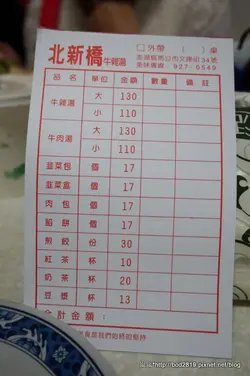 北新橋牛雜湯
□外帶 ( )桌
澎湖縣馬公市文康街34號
美味專線:927-6549
品名 單位 金額 數量 備註
牛雜湯 大 130
小 110
牛肉湯 大 130
小 110
韭菜包 個 17
韭菜盒 個 17
肉包 個 17
餡餅 個 17
煎餃 份 30
紅茶 杯 10
奶茶 杯 20
豆漿 杯 13
合計金額:
美食是我們始終的堅持
http://bod2819.pixnet.net/blog